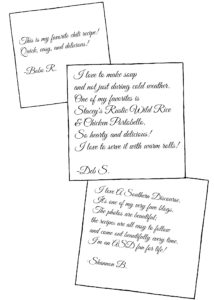 This is my favorite chili recipe!
Quick, easy, and delicious!
-Babs R.
I love to make soup
and not just during cold weather.
One of my favorites is
Stacey's Rustic Wild Rice
& Chicken Portobello.
So hearty and delicious!
I love to serve it with warm rolls!
-Deb S.
I love A Southern Discourse.
It's one of my very fave blogs.
The photos are beautiful;
the recipes are all easy to follow
and come out beautifully every time.
I'm an ASD fan for life!
-Shannon B.